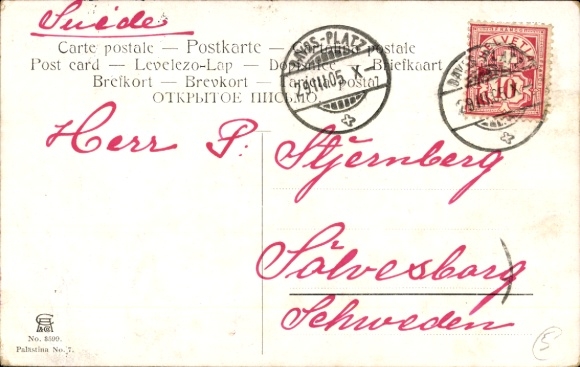 Suède
Carte postale — Postkarte — Cartolina postale
Post card — Levelezo-Lap — Dopisnice — Briefkaart
Brefkort — Brevkort — Cartão postal
ОТКРЫТОЕ ПИСЬМО
DAVOS-PLATZ
29.III.05 X
HELVETIA
10
Herr P. Stjernberg
Sölvesborg
Schweden
No. 3500.
Palästina No. 7.
5